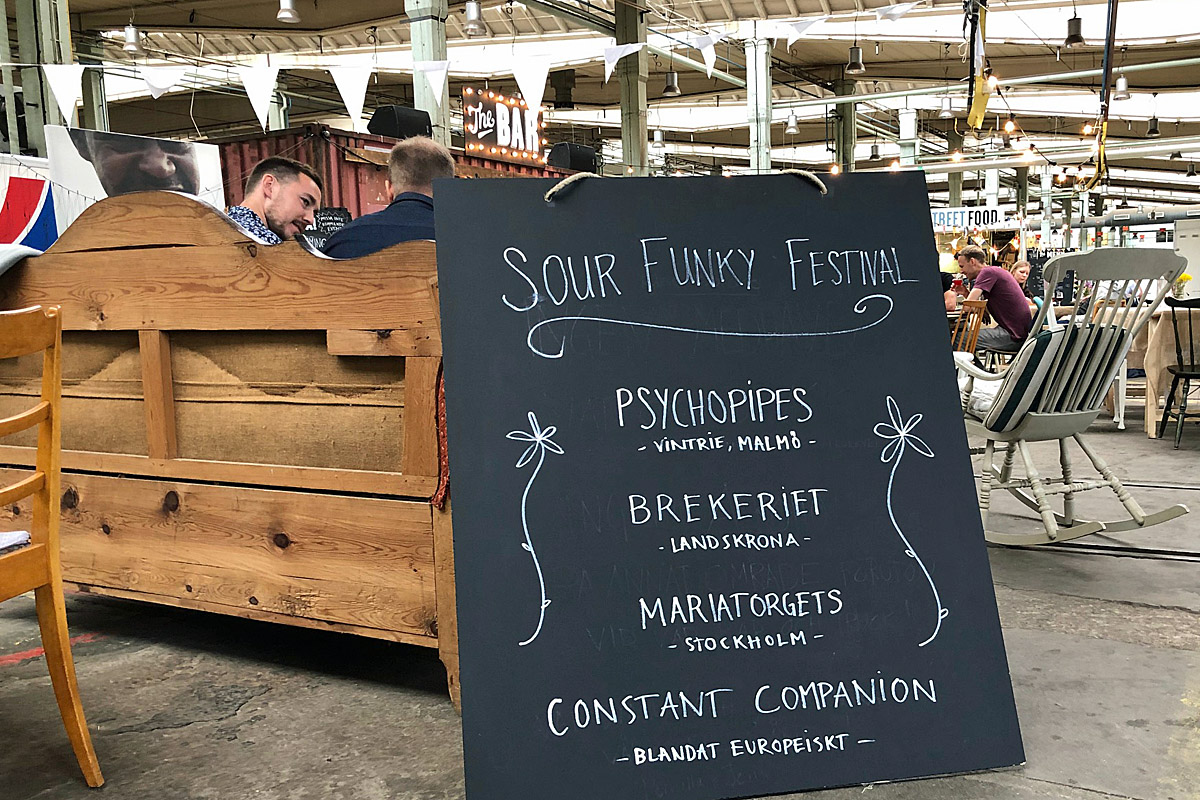 The BAR
TREET FOOD.
SOUR FUNKY FESTIVAL
PSYCHOPIPES
- VINTRIE, MALMÖ -
BREKERIET
- LANDSKRONA -
MARIATORGETS
- STOCKHOLM -
CONSTANT COMPANION
- BLANDAT EUROPEISKT -